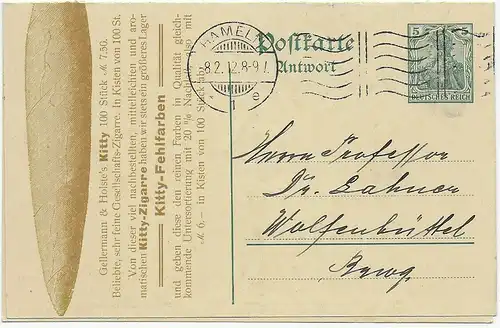 Gellermann & Holste's Kitty 100 Stück M. 7.50.
Beliebte, sehr feine Gesellschafts-Zigarre. In Kisten von 100 St.
Von dieser viel nachbestellten, mittelleichten und aro-
matischen Kitty-Zigarre haben wir stets ein größeres Lager
Kitty-Fehlfarben
und geben diese den reinen Farben in Qualität gleich-
kommende Untersortierung mit 20 % Nachlaß (also) mit
M. 6.— in Kisten von 100 Stück ab.
HAMELN
8.2.12.8-9V.
1 e
Postkarte
Antwort
5 5
DEUTSCHES REICH
Herrn Professor
Dr.
Wolfenbüttel